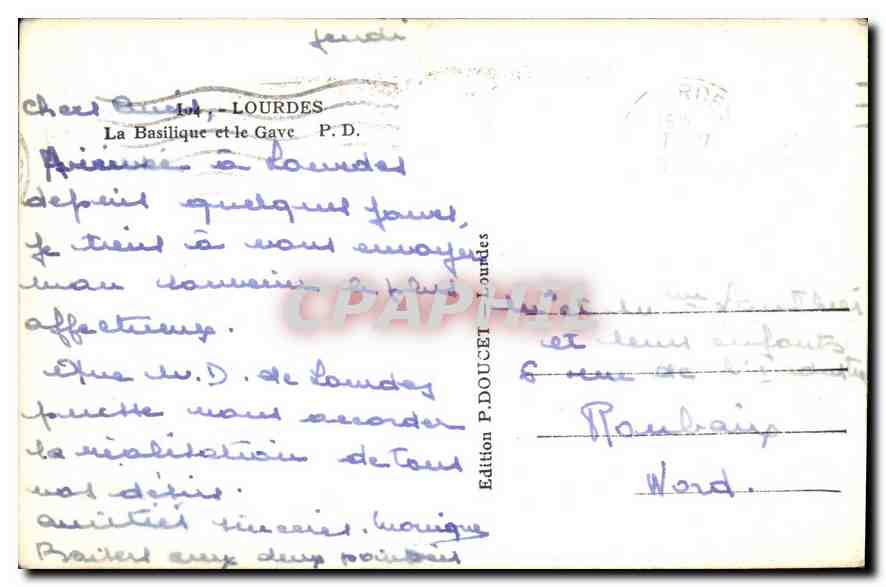 jeudi
chers amis,
101. - LOURDES
La Basilique et le Gave P. D.
Arrivée à Lourdes
depuis quelques jours,
je tiens à vous envoyer
mon souvenir le plus
affectueux.
Que N.D. de Lourdes
puisse vous accorder
la réalisation de tous
vos désirs.
amitiés sincères. Monique
Baisers aux deux
Edition P. DOUCET Lourdes
CPAPHIL
Mr et Mme
et leurs enfants
6 rue de
Roubaix
Nord.